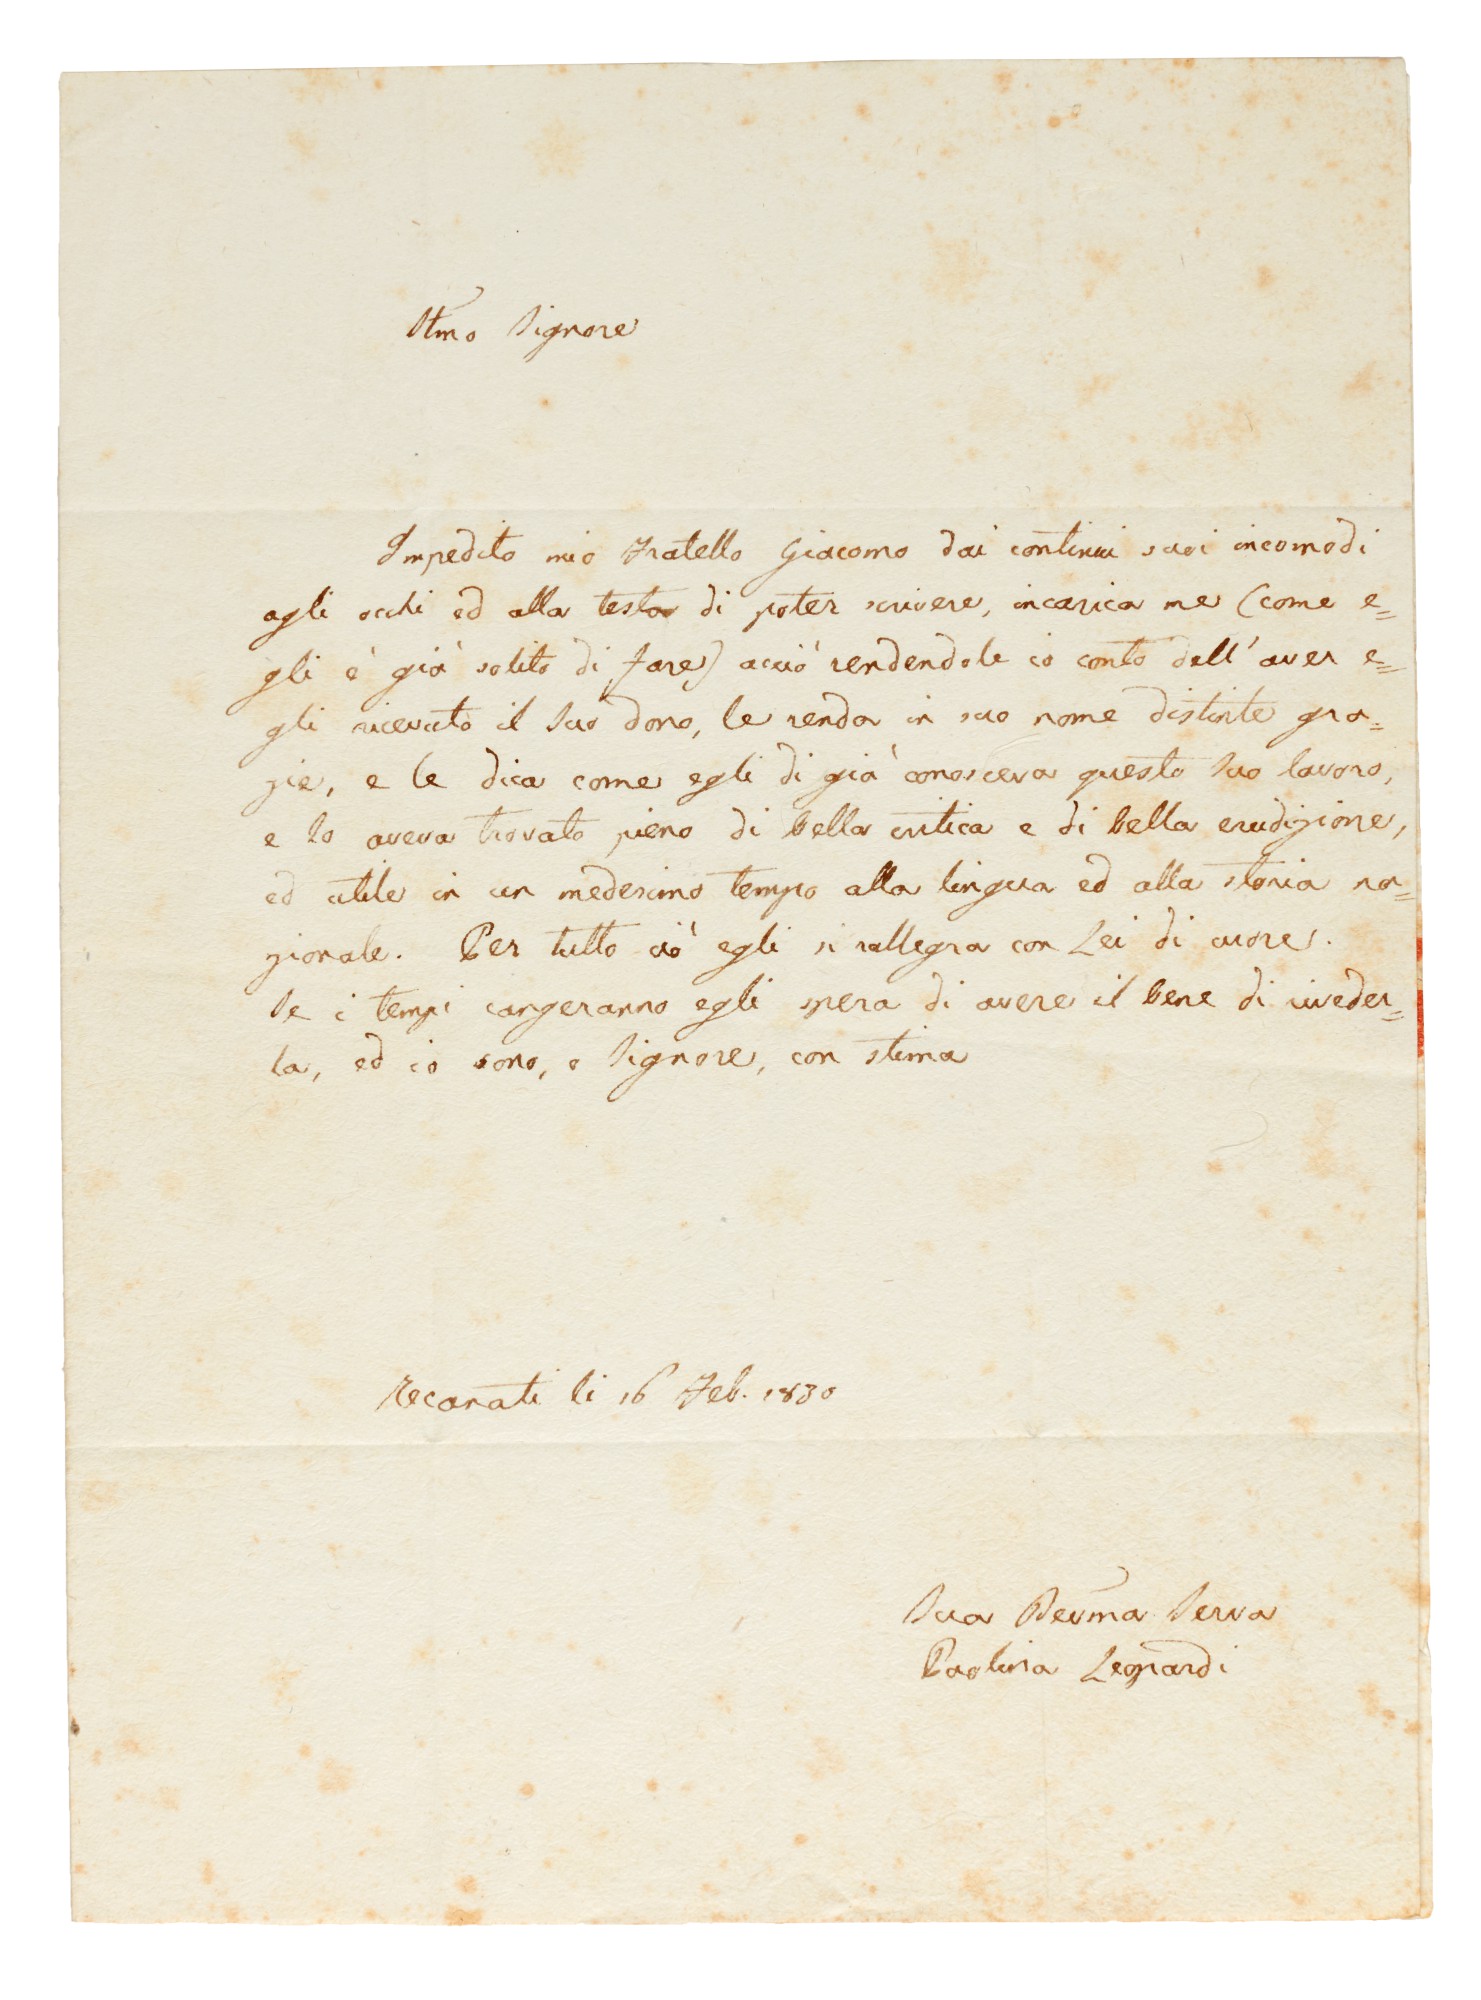 Stmo Signore
Impedito mio Fratello Giacomo dai continui suoi incomodi
agli occhi ed alla testa di poter scrivere, incarica me (come e=
gli è già solito di fare) acciò rendendole io conto dell'aver e=
gli ricevuto il Suo dono, le renda in suo nome distinte gra=
zie, e le dica come egli di già conosceva questo Suo lavoro,
e lo aveva trovato pieno di bella critica e di bella erudizione,
ed utile in un medesimo tempo alla lingua ed alla storia na=
zionale. Per tutto ciò egli si rallegra con Lei di cuore.
Se i tempi cangeranno egli spera di avere il bene di riveder=
la, ed io sono, o Signore, con stima
Recanati li 16 Feb. 1830
Sua Devma Serva
Paolina Leopardi